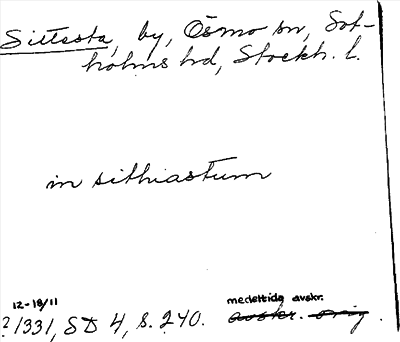 Sittesta, by, Ösmo sn, Sot-
holms hd, Stockh. l.
in sithiastum
12-18/11
? 1331, SD 4, s. 240. medeltida avskr.
avskr. orig.